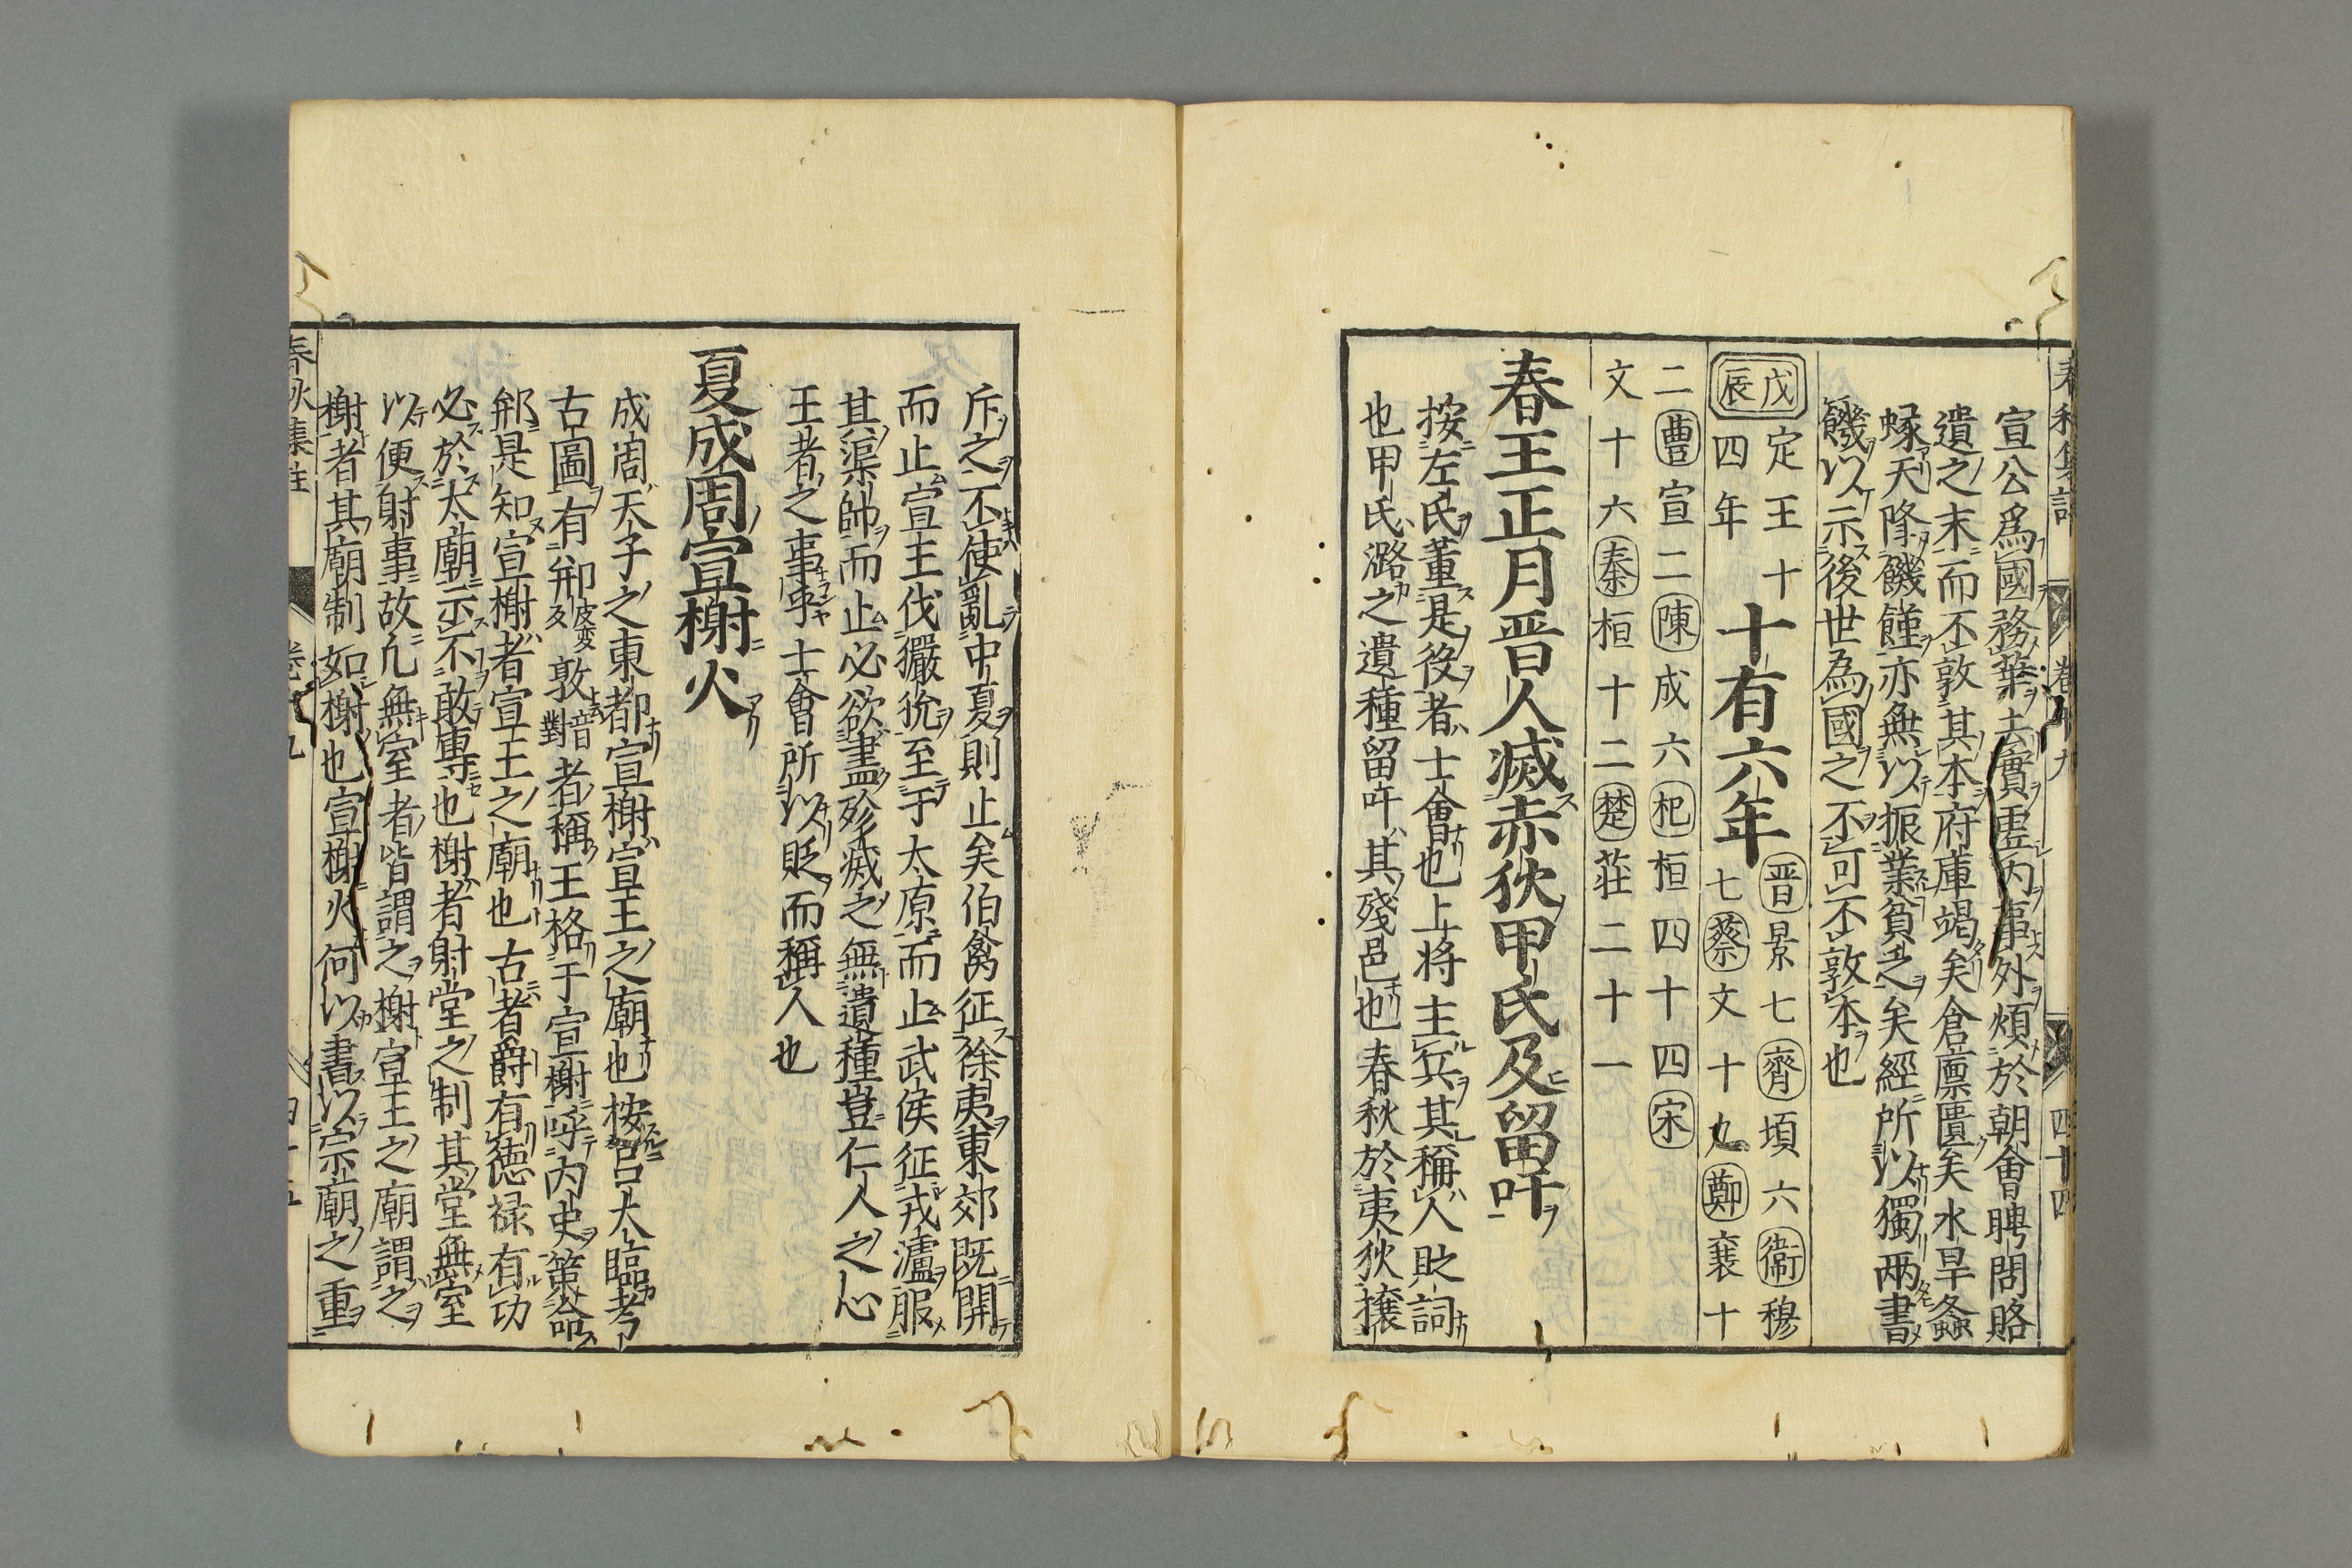 宣公爲國務華去實虛內事外煩於朝會聘問賂
遺之末而不敦其本府庫竭矣倉廩匱矣水旱螽
蝝天降饑饉亦無以振業貧乏矣經所以獨兩書
饑以示後世為國之不可不敦本也
戊辰 定王十四年
十有六年
晋景七齊頃六衞穆
七蔡文十九鄭襄十
二曹宣二陳成六杞桓四十四宋
文十六秦桓十二楚莊二十一
春王正月晋人滅赤狄甲氏及留吁
按左氏董是役者士會也上将主兵其稱人貶詞
也甲氏潞之遺種留吁其殘邑也春秋於夷狄攘
斥之不使亂中夏則止矣伯禽征徐夷東郊既開
而止宣王伐玁狁至于太原而止武侯征戎瀘服
其渠帥而止必欲盡殄滅之無遺種豈仁人之心
王者之事乎士會所以貶而稱人也
夏成周宣榭火
成周天子之東都宣榭宣王之廟也按呂大臨考
古圖有䢼皮変反敦音對者稱王格于宣榭呼內史策命
䢼是知宣榭者宣王之廟也古者爵有德禄有功
必於太廟示不敢專也榭者射堂之制其堂無室
以便射事故凢無室者皆謂之榭宣王之廟謂之
榭者其廟制如榭也宣榭火何以書以宗廟之重
春秋集註 卷十九 四十四
春秋集註